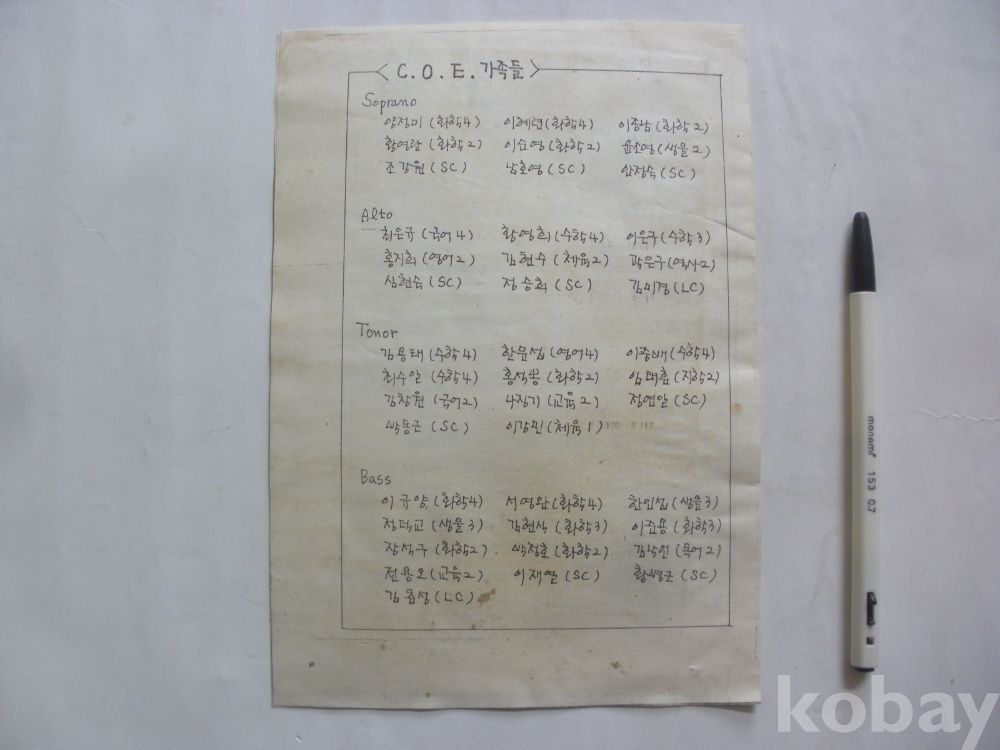 C. O. E. 가족들
Soprano
양정미 (화학4) 이혜련 (화학4) 이종남 (화학2)
황영란 (화학2) 이순영 (화학2) 윤소영 (생물2)
조강원 (SC) 남호영 (SC) 안정숙 (SC)
Alto
최은규 (국어4) 황영희 (수학4) 이은구 (수학3)
홍지희 (영어2) 김현수 (체육2) 곽은구 (역사2)
심현숙 (SC) 정승희 (SC) 김미경 (LC)
Tenor
김용태 (수학4) 한문섭 (영어4) 이종배 (수학4)
최수일 (수학4) 홍석봉 (화학2) 임대흠 (지학2)
김창원 (국어2) 나장기 (교육2) 정연일 (SC)
박동근 (SC) 이강민 (체육1)
Bass
이규양 (화학4) 서영완 (화학4) 한인섭 (생물3)
정덕교 (생물3) 김현식 (화학3) 이준용 (화학3)
장석구 (화학2) 박정호 (화학2) 김낙인 (독어2)
전용오 (교육2) 이재열 (SC) (SC)
(LC)
monami 153 0.7
kobay